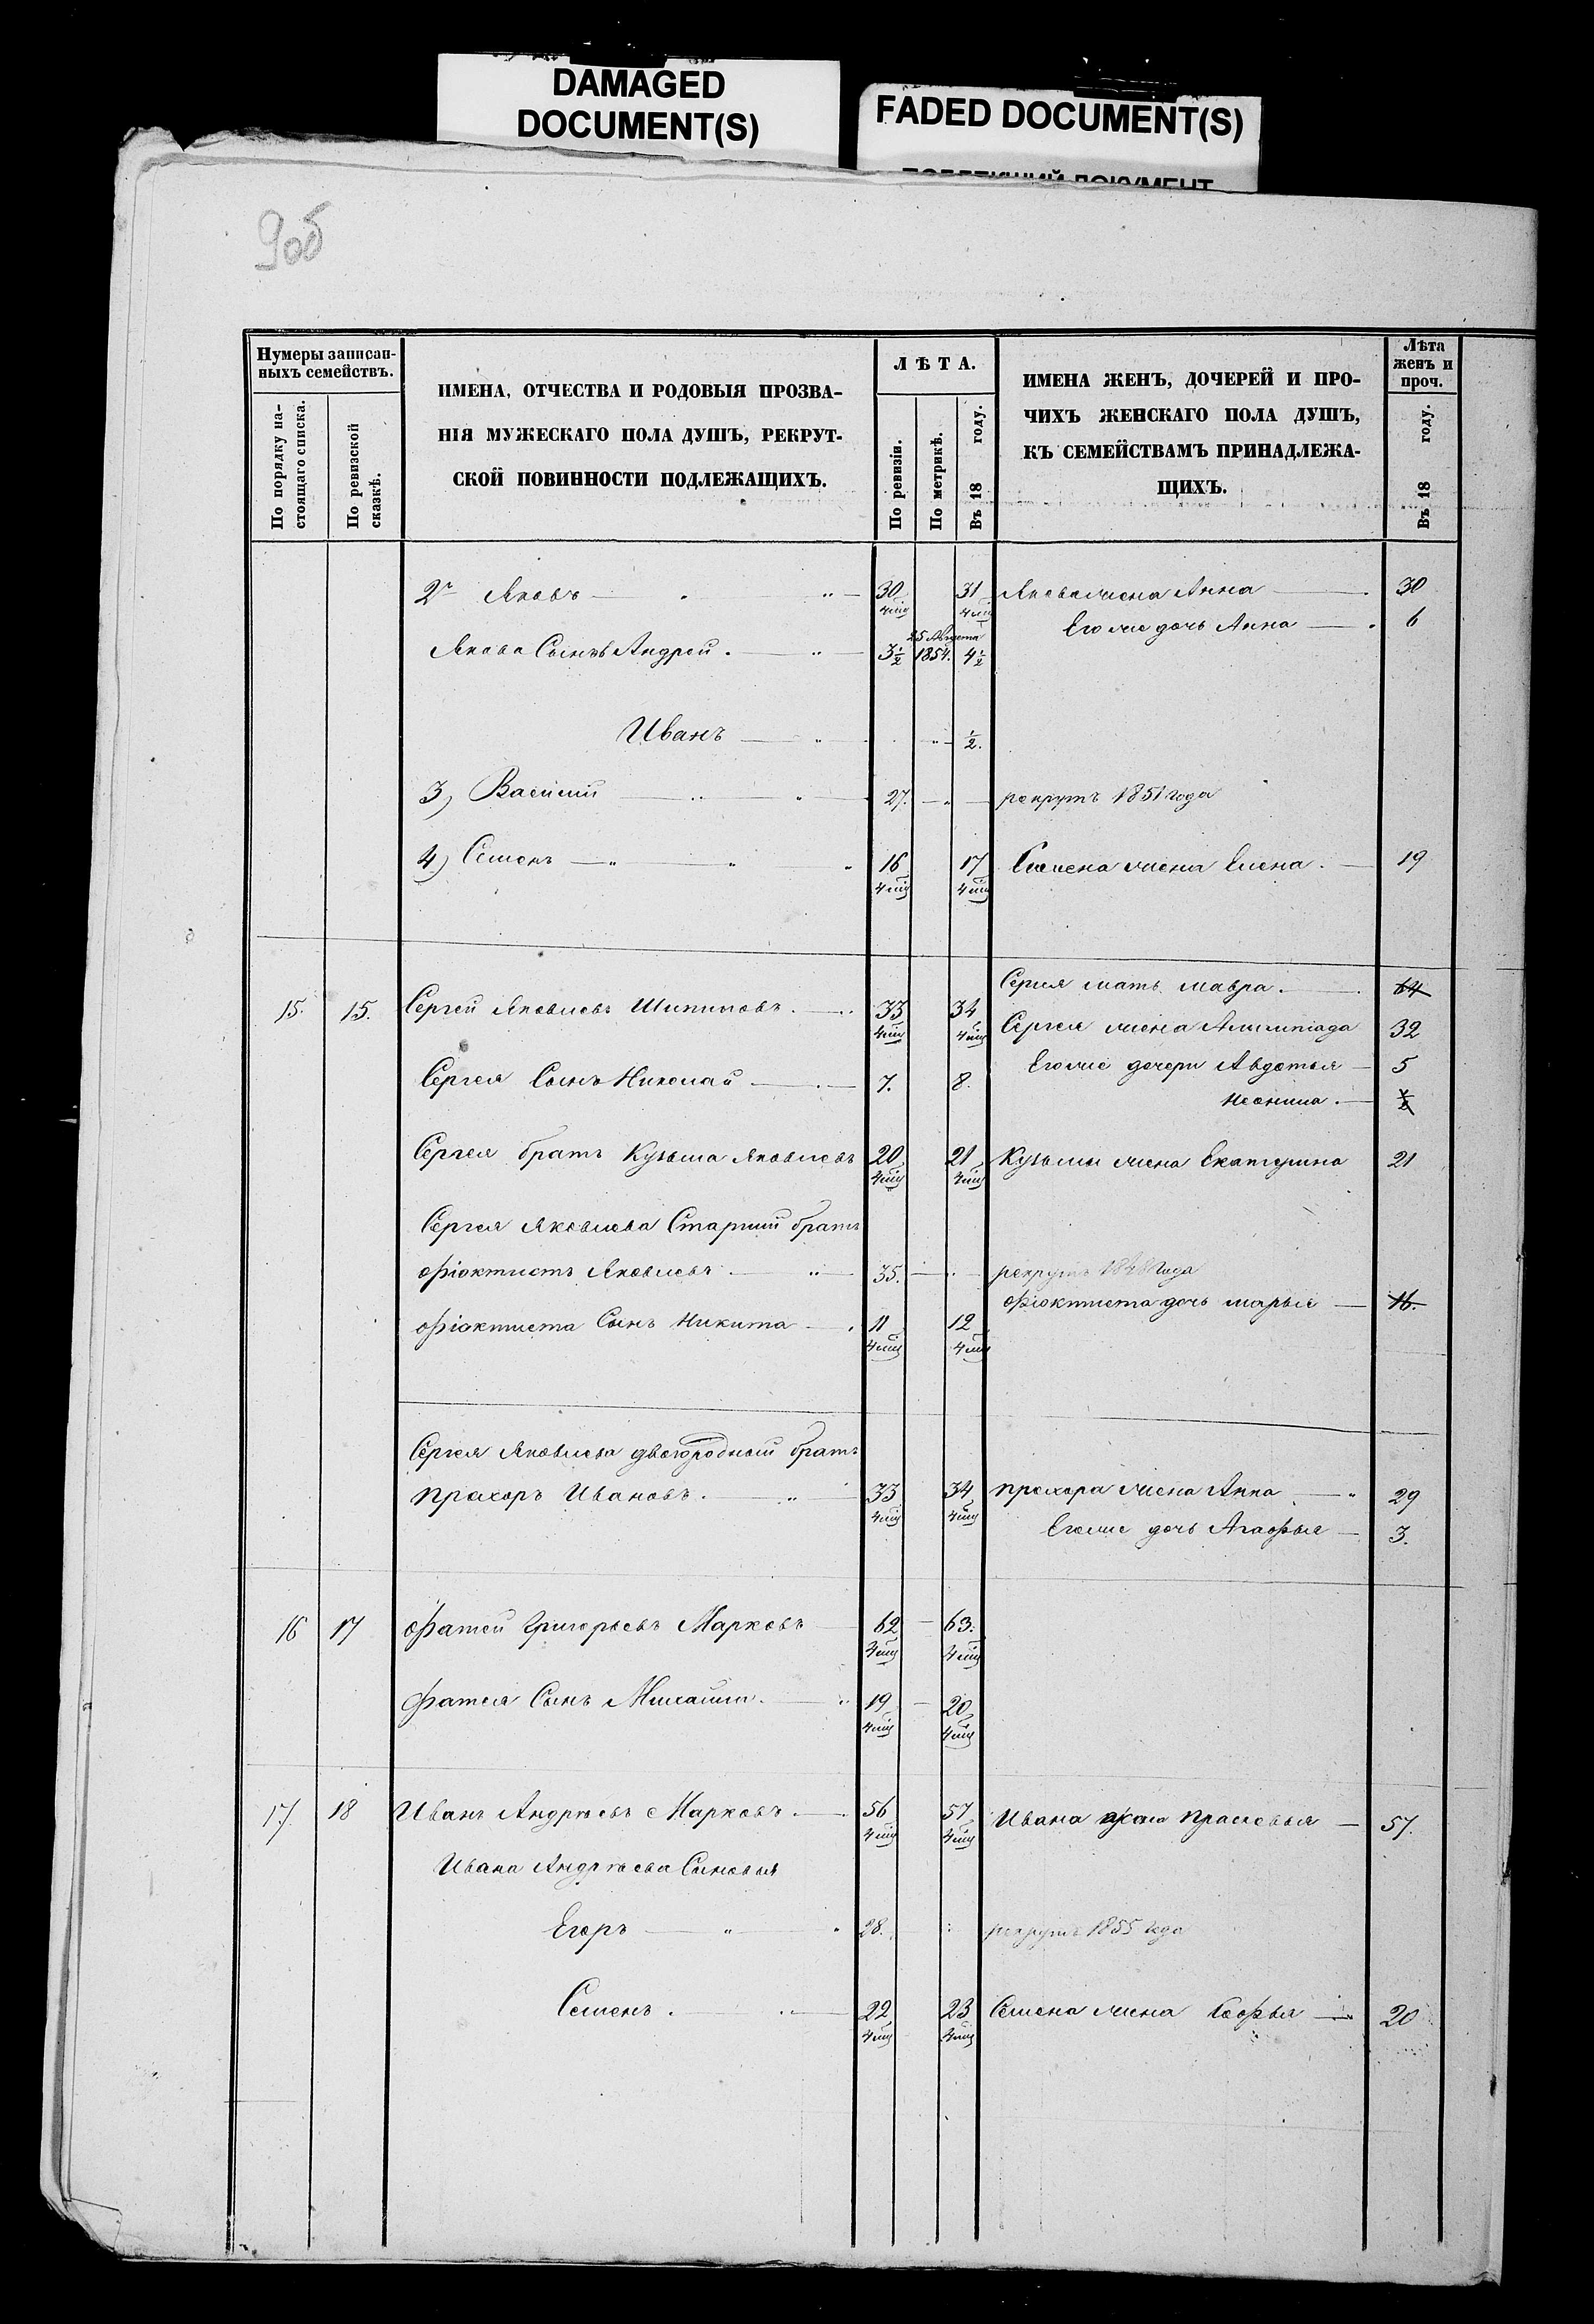 DAMAGED
DOCUMENT(S)
FADED DOCUMENT(S)
90б
Нумеры записан-
ныхъ семействъ.
По порядку на-
стоящаго списка.
По ревизской
сказкѣ.
ИМЕНА, ОТЧЕСТВА И РОДОВЫЯ ПРОЗВА-
НІЯ МУЖЕСКАГО ПОЛА ДУШЪ, РЕКРУТ-
СКОЙ ПОВИННОСТИ ПОДЛЕЖАЩИХЪ.
ЛѢТА.
По ревизіи.
По метрикѣ.
Въ 18 году.
ИМЕНА ЖЕНЪ, ДОЧЕРЕЙ И ПРО-
ЧИХЪ ЖЕНСКАГО ПОЛА ДУШЪ,
КЪ СЕМЕЙСТВАМЪ ПРИНАДЛЕЖА-
ЩИХЪ.
Лѣта
женъ и
проч.
Въ 18 году.
2й Яковъ 30 31 Якова жена Анна 30
Его же дочь Анна 6
25 Августа
Якова Сынъ Андрей 3½ 1854. 4½
Иванъ ½.
3) Василий 27. рекрутъ 1851 года
4) Семенъ 16 17 Семена жена Елена 19
Сергея мать мавра 64
15. 15. Сергей Яковлевъ Шипиловъ 33 34 Сергея жена Алимпіада 32
Его же дочери Авдотья 5
Сергея Сынъ Николай 7. 8.
Неонила
Сергея братъ Кузьма Яковлевъ 20 21 Кузьмы жена Екатерина 21
Сергея Яковлева Старший братъ
Фіоктистъ Яковлевъ 35. рекрутъ 1848 года
Фіоктиста дочь марья 16.
Фіоктиста Сынъ Никита 11 12
Сергея Яковлева двоюродный братъ
Прахоръ Ивановъ 33 34 Прахора жена Анна 29
Его же дочь Агафья 3.
16 17 Фатей Григорьевъ Марковъ 62 63.
Фатея Сынъ Михаила 19 20
17. 18 Иванъ Андрѣевъ Марковъ 56 57 Ивана жена Прасковья 57.
Ивана Андрѣева Сыновья
Егоръ 28. рекрутъ 1855 года
Семенъ 22 23 Семена жена Софья 20